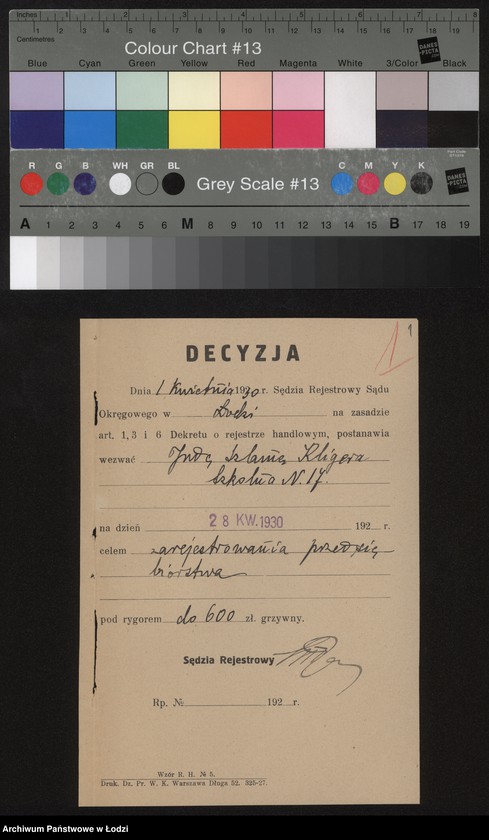 Inches 1 2 3 4 5 6 7 8
Centimetres 1 2 3 4 5 6 7 8 9 10 11 12 13 14 15 16 17 18 19
Colour Chart #13
DANES-PICTA
Blue Cyan Green Yellow Red Magenta White 3/Color Black
R G B WH GR BL Grey Scale #13 C M Y K
DANES-PICTA
A 1 2 3 4 5 6 M 8 9 10 11 12 13 14 15 B 17 18 19
1 1
DECYZJA
Dnia 1 Kwietnia 1930 r. Sędzia Rejestrowy Sądu
Okręgowego w Łodzi na zasadzie
art. 1, 3 i 6 Dekretu o rejestrze handlowym, postanawia
wezwać Judę Szlamę Kligera
Szkolna N. 17.
na dzień 28 KW. 1930 192 r.
celem zarejestrowania przedsię
biorstwa
pod rygorem do 600 zł. grzywny.
Sędzia Rejestrowy
Rp. № 192 r.
Wzór R. H. № 5.
Druk. Dz. Pr. W. K. Warszawa Długa 52. 325-27.
Archiwum Państwowe w Łodzi